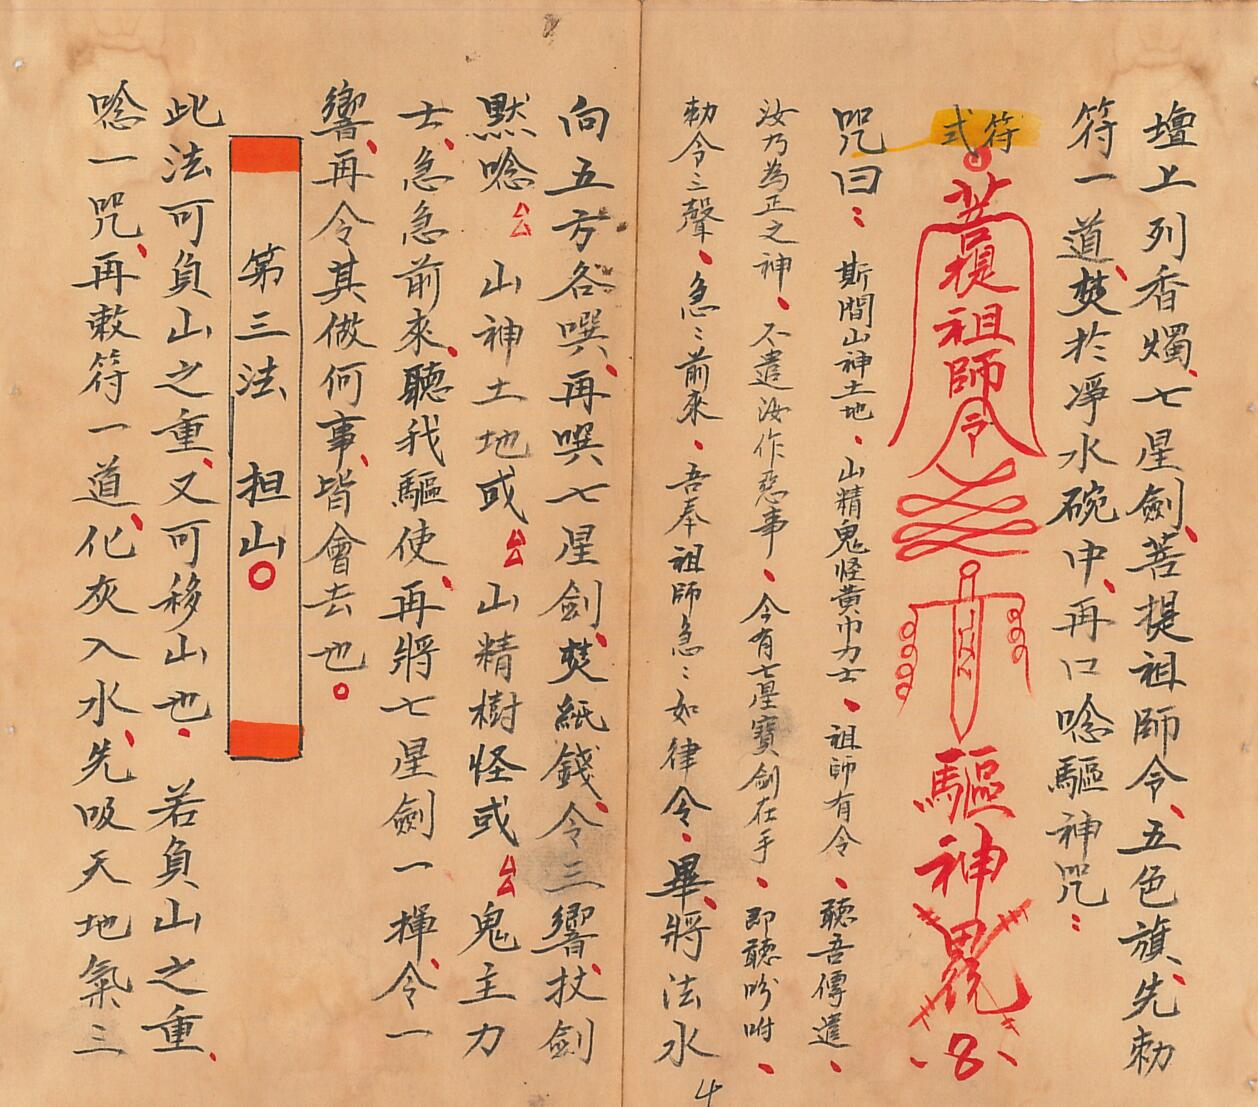 壇上列香燭、七星劍、菩提祖師令、五色旗、先勅
符一道、焚於凈水碗中、再口唸驅神咒：
符式
菩提祖師令
驅神
咒曰： 斯間山神土地、山精鬼怪黃巾力士、祖師有令、聽吾傳遣、
汝乃為正之神、不遣汝作惡事、今有七星寶劍在手、即聽吩咐、
勅令三聲、急〻前來、吾奉祖師急〻如律令、畢、將法水
向五方各噀、再噀七星劍、焚紙錢、令三響、扙劍
默唸 厶厶 山神土地或 厶厶 山精樹怪或 厶厶 鬼主力
士、急急前來、聽我驅使、再將七星劍一揮、令一
響、再令其做何事、皆會去也。
第三法 担山○
此法可負山之重、又可移山也、若負山之重、
唸一咒、再敕符一道、化灰入水、先吸天地氣三
4